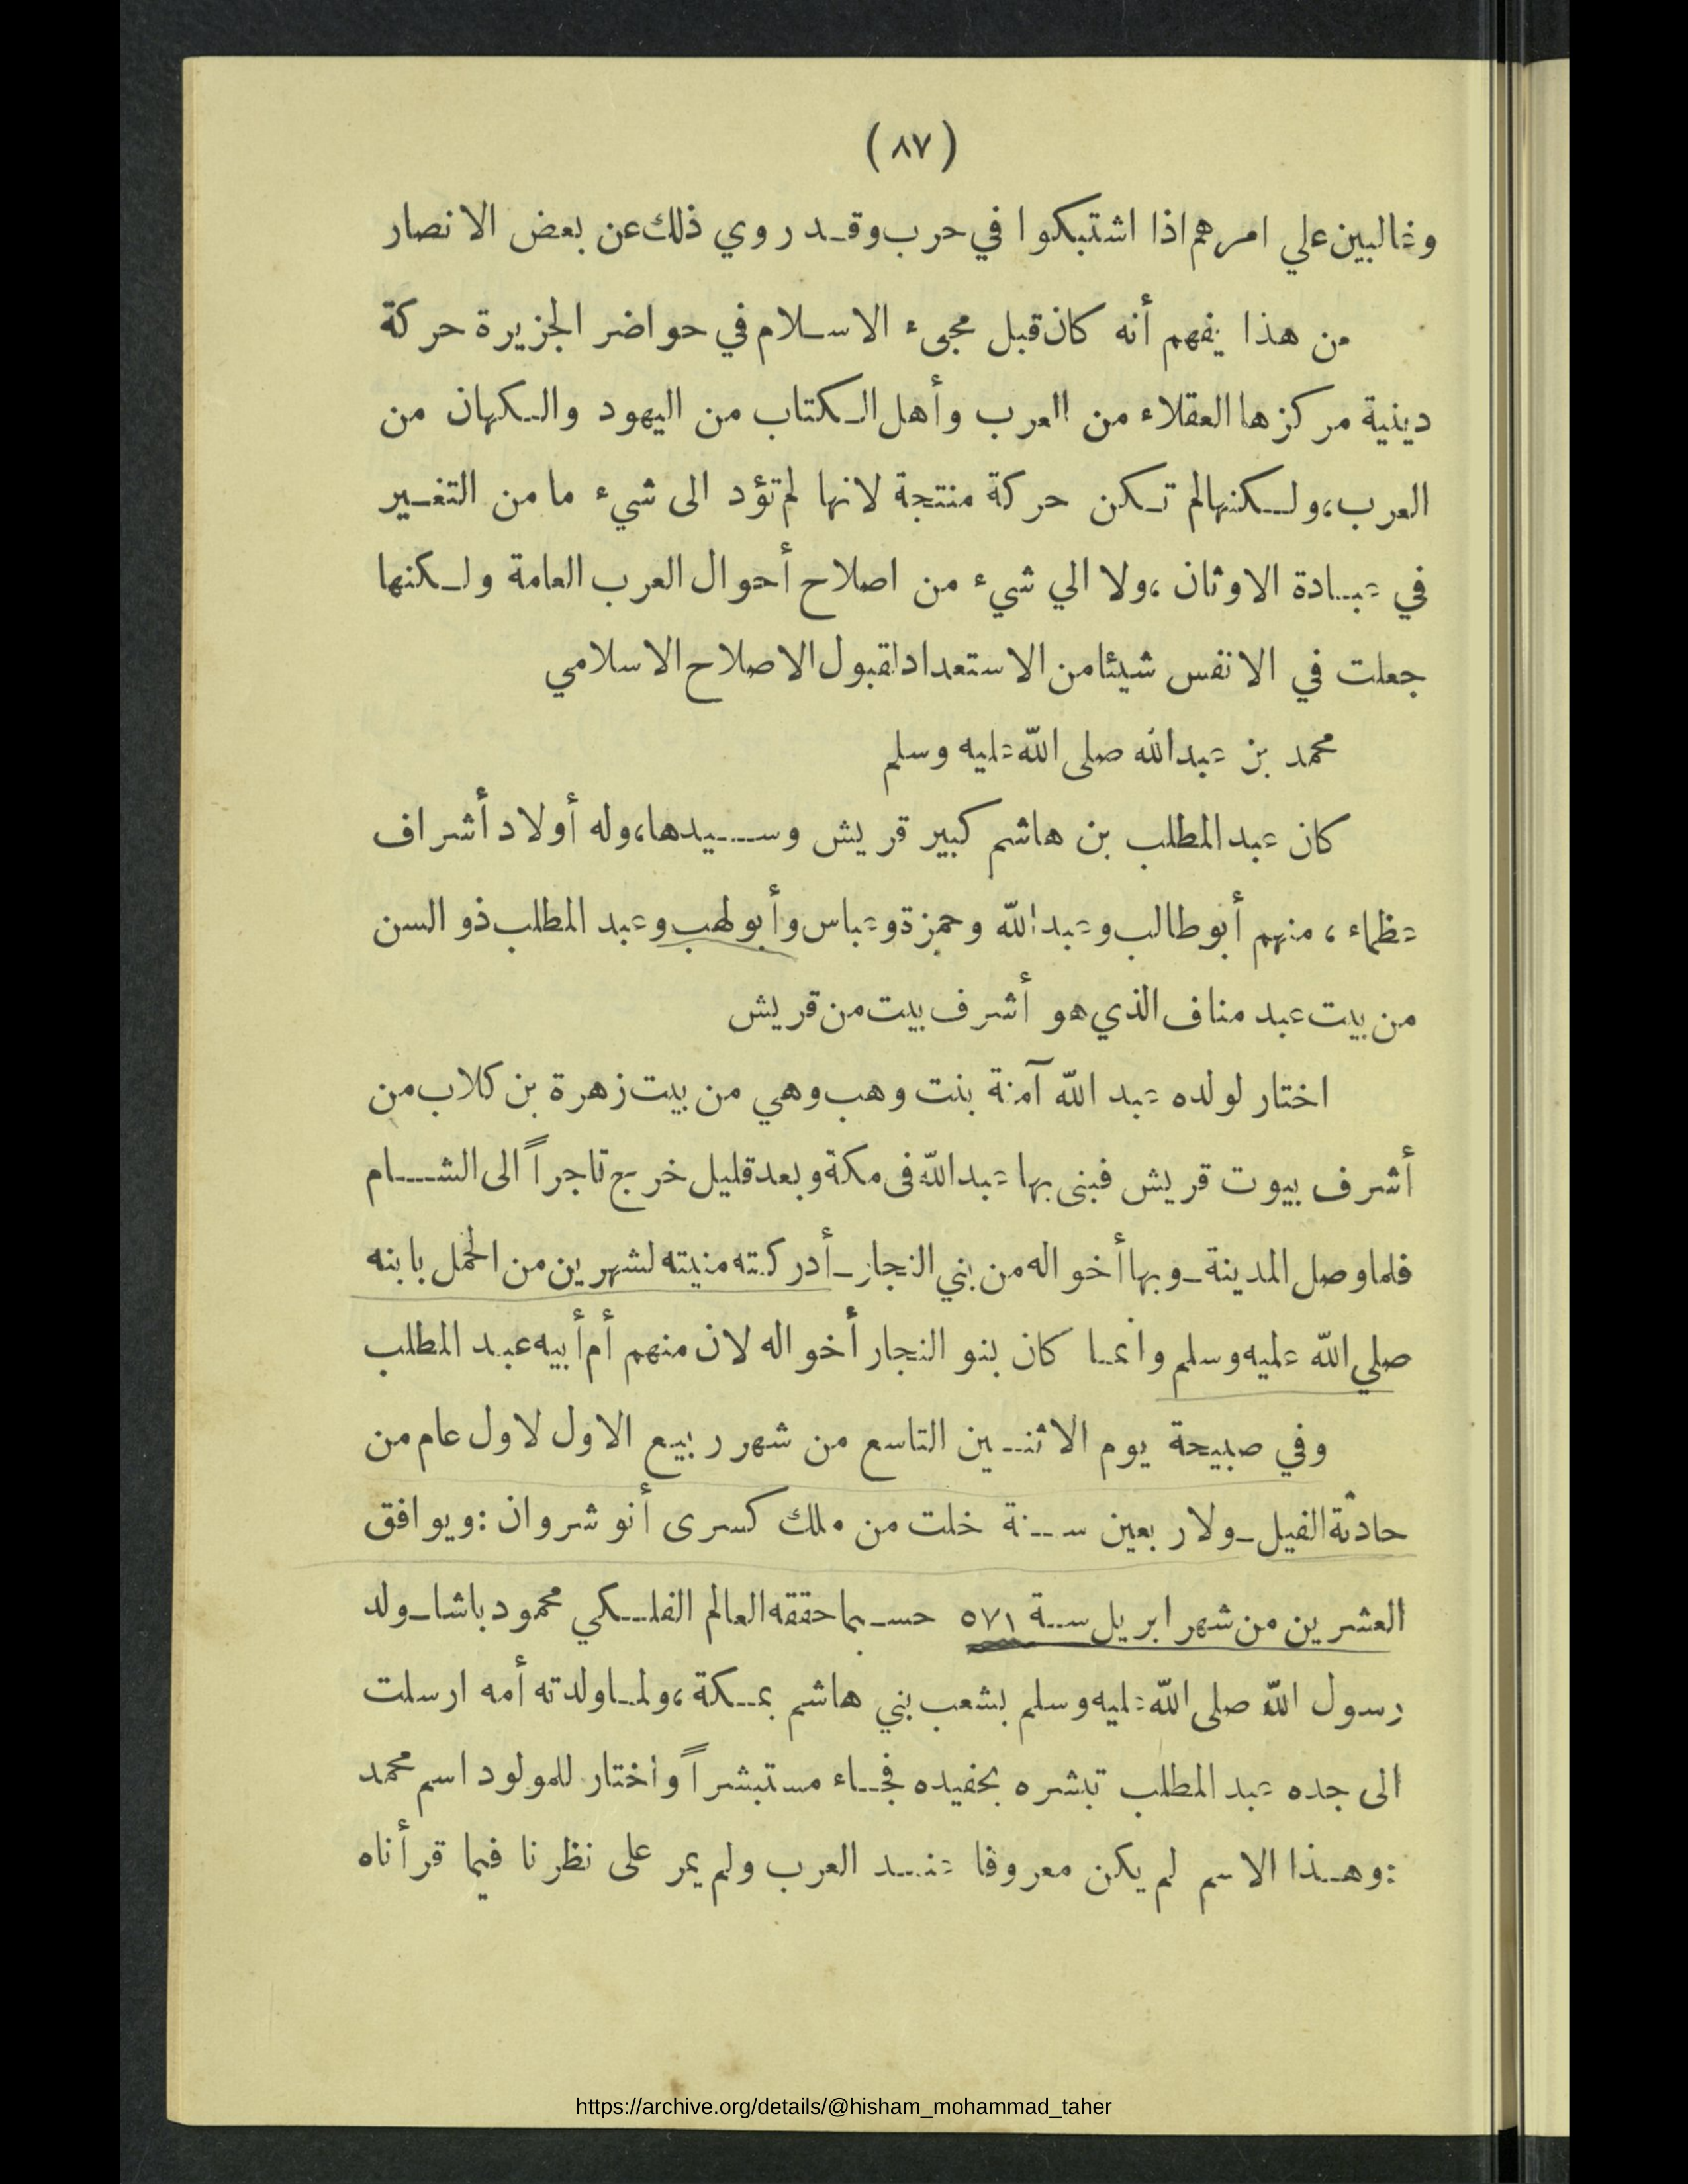 (٨٧)
وغالبين علي امرهم اذا اشتبكوا في حرب وقد روي ذلك عن بعض الانصار
من هذا يفهم أنه كان قبل مجىء الاسلام في حواضر الجزيرة حركة
دينية مركزها العقلاء من العرب وأهل الكتاب من اليهود والكهان من
العرب، ولكنها لم تكن حركة منتجة لانها لم تؤد الى شيء ما من التغيير
في عبادة الاوثان، ولا الي شيء من اصلاح أحوال العرب العامة ولكنها
جعلت في الانفس شيئا من الاستعداد لقبول الاصلاح الاسلامي
محمد بن عبد الله صلى الله عليه وسلم
كان عبد المطلب بن هاشم كبير قريش وسيدها، وله أولاد أشراف
عظماء، منهم أبو طالب وعبد الله وحمزة وعباس وأبو لهب وعبد المطلب ذو السن
من بيت عبد مناف الذي هو أشرف بيت من قريش
اختار لولده عبد الله آمنة بنت وهب وهي من بيت زهرة بن كلاب من
أشرف بيوت قريش فبنى بها عبد الله فى مكة وبعد قليل خرج تاجراً الى الشام
فلما وصل المدينة ـ وبها أخواله من بني النجار ـ أدركته منيته لشهرين من الحمل بابنه
صلي الله عليه وسلم وانما كان بنو النجار أخواله لان منهم أم أبيه عبد المطلب
وفي صبيحة يوم الاثنين التاسع من شهر ربيع الاول لاول عام من
حادثة الفيل ـ ولاربعين سنة خلت من ملك كسرى أنوشروان : ويوافق
العشرين من شهر ابريل سنة ٥٧١ حسبما حققه العالم الفلكي محمود باشا ـ ولد
رسول الله صلى الله عليه وسلم بشعب بني هاشم بمكة، ولما ولدته أمه ارسلت
الى جده عبد المطلب تبشره بحفيده فجاء مستبشراً واختار للمولود اسم محمد
: وهذا الاسم لم يكن معروفا عند العرب ولم يمر على نظرنا فيما قرأناه
https://archive.org/details/@hisham_mohammad_taher